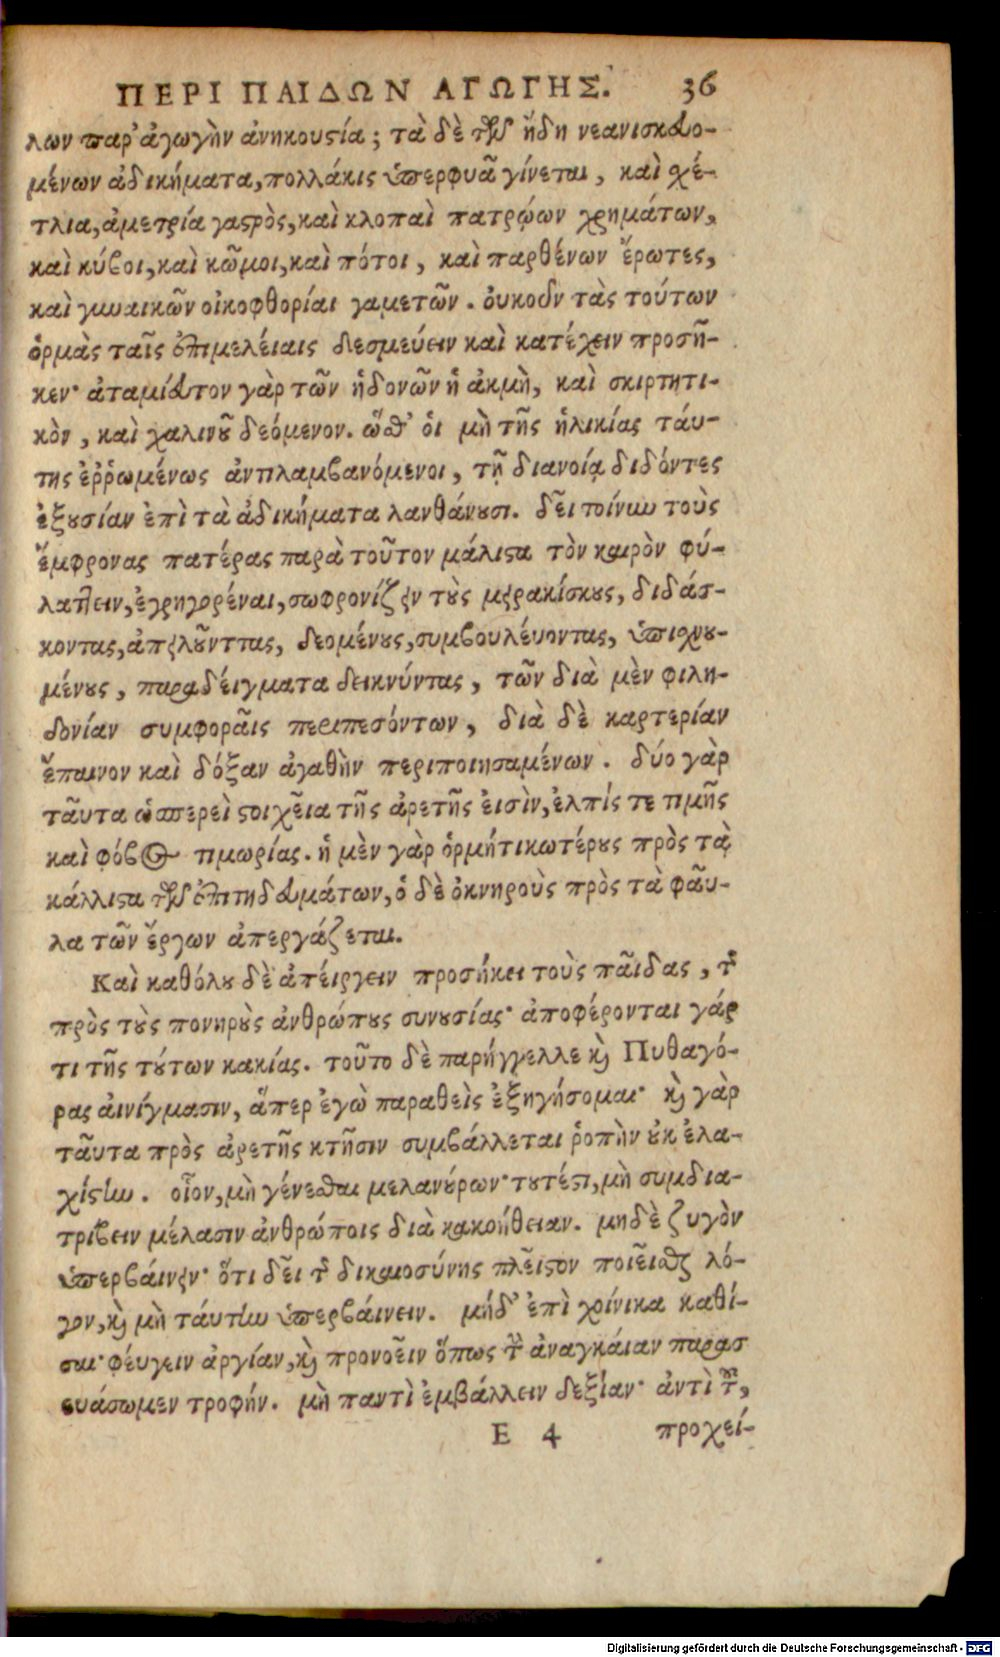 ΠΕΡΙ ΠΑΙΔΩΝ ΑΓΩΓΗΣ. 36
λων παρ' ἀγωγὴν ἀνηκουστία; τὰ δὲ τῶν ἤδη νεανισκευο-
μένων ἀδικήματα, πολλάκις ὑπερφυᾶ γίνεται, καὶ χέ-
τλια, ἀμετρία γαστρὸς, καὶ κλοπαὶ πατρῴων χρημάτων,
καὶ κύβοι, καὶ κῶμοι, καὶ πότοι, καὶ παρθένων ἔρωτες,
καὶ γυναικῶν οἰκοφθορίαι γαμετῶν. ὀυκοῦν τὰς τούτων
ὁρμὰς ταῖς ἐπιμελέιαις δεσμεύειν καὶ κατέχειν προσῆ-
κεν· ἀταμίευτον γὰρ τῶν ἡδονῶν ἡ ἀκμὴ, καὶ σκιρτητι-
κὸν, καὶ χαλινοῦ δεόμενον. ὥσθ' ὁι μὴ τῆς ἡλικίας τάυ-
της ἐῤῥωμένως ἀντιλαμβανόμενοι, τῇ διανοίᾳ διδόντες
ἐξουσίαν ἐπὶ τὰ ἀδικήματα λανθάνουσι. δεῖ τοίνυν τοὺς
ἔμφρονας πατέρας παρὰ τοῦτον μάλιστα τὸν καιρὸν φύ-
λαττειν, ἐγρηγορέναι, σωφρονίζειν τοὺς μειρακίσκους, διδάσ-
κοντας, ἀπειλοῦντας, δεομένους, συμβουλέυοντας, ὑπισχνου-
μένους, παραδέιγματα δεικνύντας, τῶν διὰ μὲν φιλη-
δονίαν συμφοραῖς περιπεσόντων, διὰ δὲ καρτερίαν
ἔπαινον καὶ δόξαν ἀγαθὴν περιποιησαμένων. δύο γὰρ
ταῦτα ὡσπερεὶ στοιχεῖα τῆς ἀρετῆς ἐισὶν, ἐλπίς τε τιμῆς
καὶ φόβος τιμωρίας. ἡ μὲν γὰρ ὁρμήτικωτέρους πρὸς τὰ
κάλλιστα τῶν ἐπιτηδευμάτων, ὁ δὲ ὀκνηροὺς πρὸς τὰ φαῦ-
λα τῶν ἔργων ἀπεργάζεται.
Καὶ καθόλου δὲ ἀπέιργειν προσήκει τοὺς παῖδας, τῆς
πρὸς τοὺς πονηροὺς ἀνθρώπους συνουσίας· ἀποφέρονται γάρ
τι τῆς τούτων κακίας. τοῦτο δὲ παρήγγελλε καὶ Πυθαγό-
ρας ἀινίγμασιν, ἅπερ ἐγὼ παραθεὶς ἐξηγήσομαι· καὶ γὰρ
ταῦτα πρὸς ἀρετῆς κτῆσιν συμβάλλεται ῥοπὴν οὐκ ἐλα-
χίστην. οἷον, μὴ γένεσθαι μελανούρων· τουτέστι, μὴ συμδια-
τρίβειν μέλασιν ἀνθρώποις διὰ κακοήθειαν. μηδὲ ζυγὸν
ὑπερβάινειν· ὅτι δεῖ τῆς δικαιοσύνης πλεῖστον ποιεῖσθαι λό-
γον, καὶ μὴ τάυτην ὑπερβάινειν. μήδ' ἐπὶ χοίνικα καθί-
σαι· φέυγειν ἀργίαν, καὶ προνοεῖν ὅπως τὴν ἀναγκάιαν παρασ
ευάσωμεν τροφήν. μὴ παντὶ ἐμβάλλειν δεξίαν· ἀντὶ τοῦ,
E 4 προχεί-
Digitalisierung gefördert durch die Deutsche Forschungsgemeinschaft - DFG